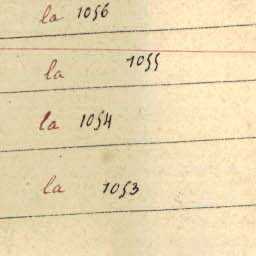 la 1056
la 1055
la 1054
la 1053